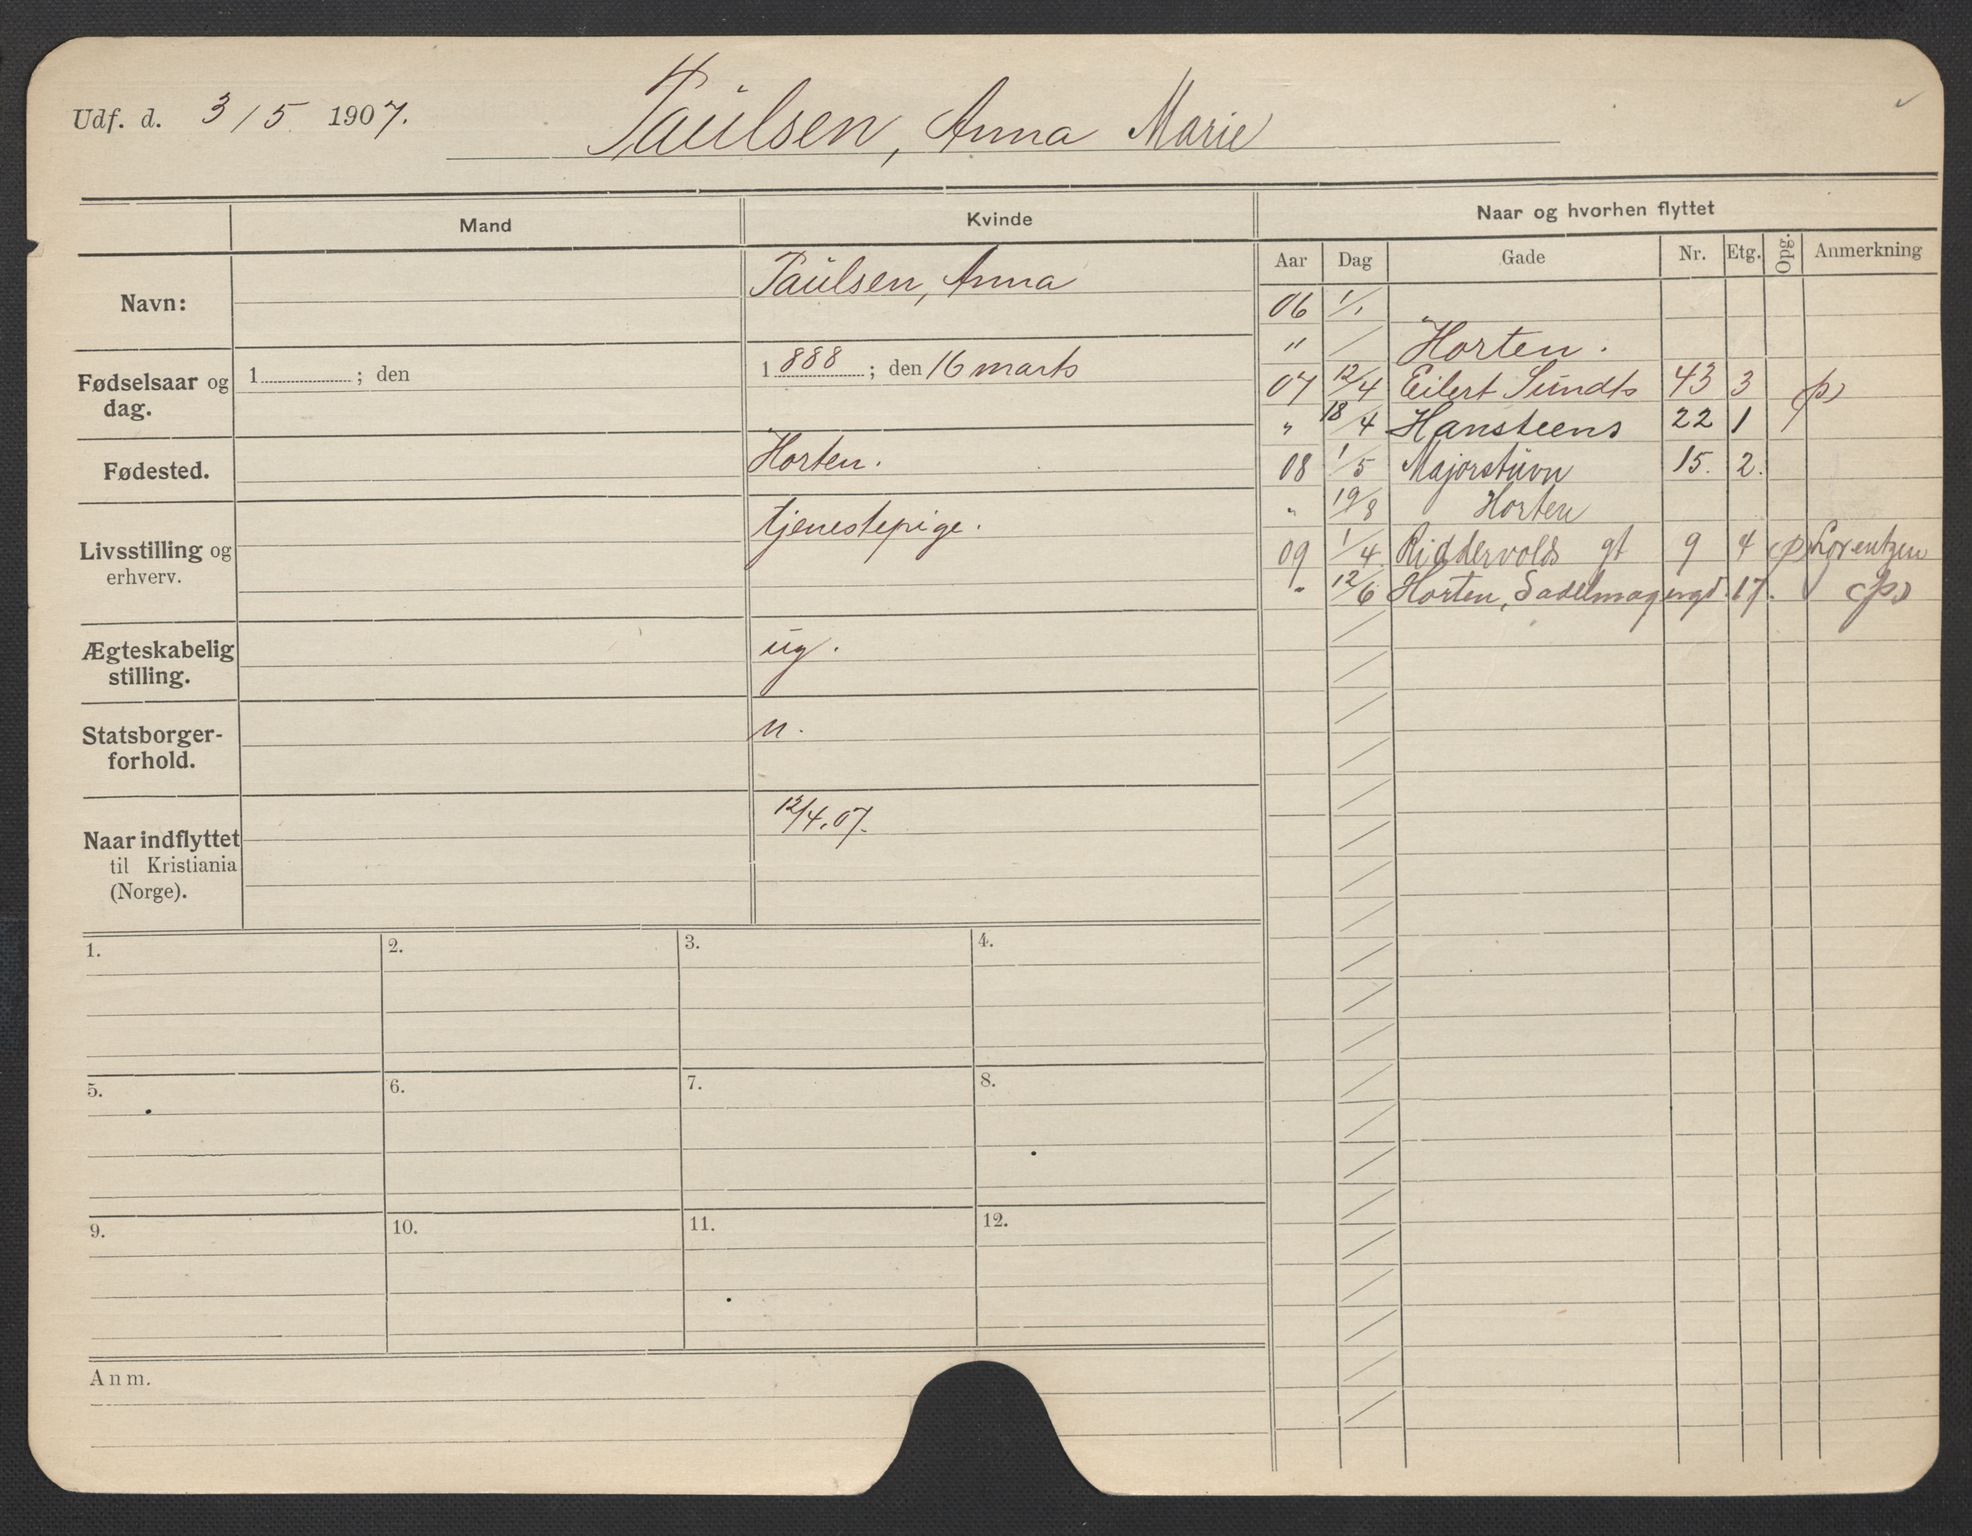 Udf. d. 3/5 1907. Paulsen, Anna Marie
Mand Kvinde Naar og hvorhen flyttet
Aar Dag Gade Nr. Etg. Opg. Anmerkning
Navn: Paulsen, Anna
Fødselsaar og dag. 1 ; den 1888 ; den 16 marts
Fødested. Horten.
Livsstilling og erhverv. tjenestepige.
Ægteskabelig stilling. ug.
Statsborgerforhold. n.
Naar indflyttet til Kristiania (Norge). 12/4.07.
06 1/1
" / Horten.
07 12/4 Eilert Sundts 43 3 (p)
" 18/4 Hansteens 22 1 /
08 1/5 Majorstuvn 15. 2.
" 19/8 Horten
09 1/4 Riddervolds gt 9 4 (p) Lorentzen
" 12/6 Horten, Sadelmagergd. 17. (p)
1. 2. 3. 4.
5. 6. 7. 8.
9. 10. 11. 12.
Anm.